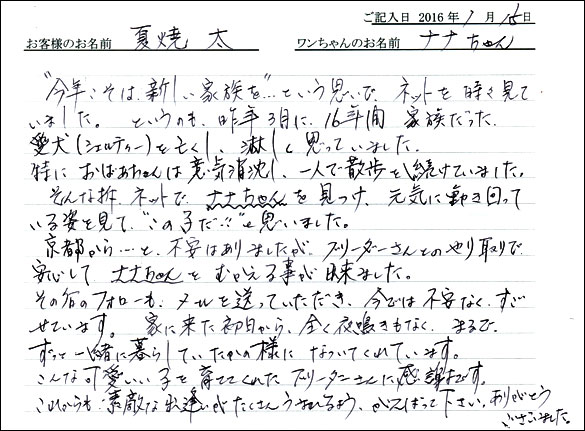 ご記入日 2016年 1月 15日
お客様のお名前 夏焼 太 ワンちゃんのお名前 ナナちゃん
"今年こそは新しい家族を"…という思いで ネットを時々見て
いました。 というのも、昨年3月に、16年間 家族だった
愛犬(シェルティー)を亡くし、淋しく思っていました。
特に おばあちゃんは意気消沈し、一人で散歩を続けていました。
そんな折、ネットで、ナナちゃんを見つけ、元気に動き回って
いる姿を見て、"この子だ!!"と思いました。
京都から…と、不安はありましたが、ブリーダーさんとのやり取りで
安心して ナナちゃんを むかえる事が出来ました。
その後のフォローも、メールを送っていただき、今では不安なく、すご
せています。 家に来た初日から、全く夜鳴きもなく、まるで、
ずっと一緒に暮らしていたかの様に なついてくれています。
こんな可愛いい子を育ててくれた ブリーダーさんに感謝です。
これからも 素敵な出逢いがたくさんうまれるよう、がんばって下さい。ありがとう
ございました。